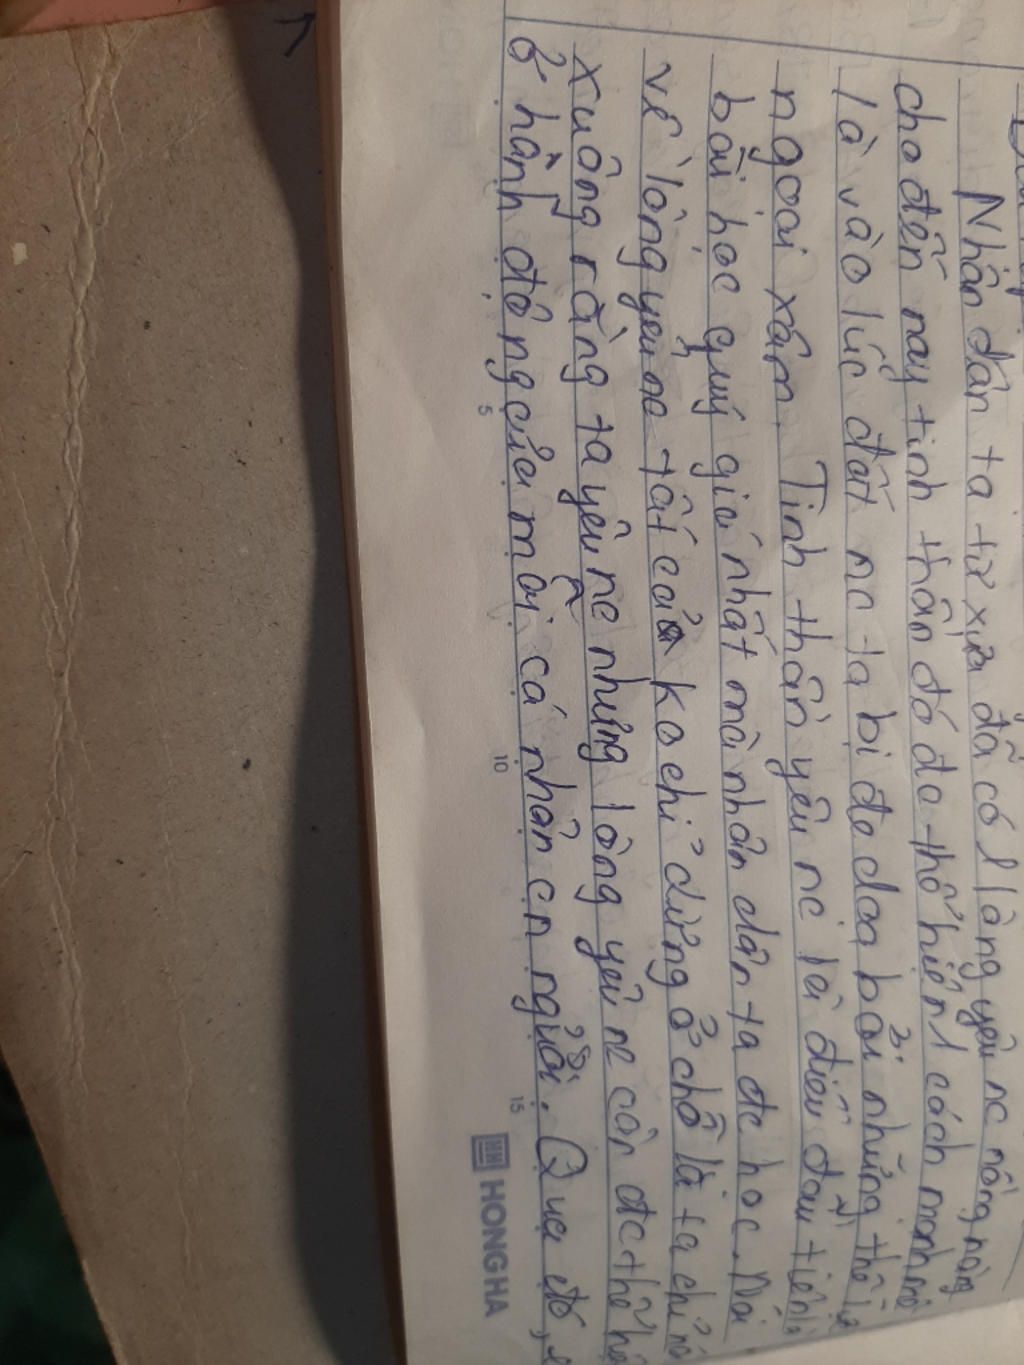 Nhân dân ta từ xưa đã có 1 lòng yêu nc nồng nàng
cho đến nay tinh thần đó đc thể hiện 1 cách mạnh mẽ
là vào lúc đất nc ta bị đe dọa bởi những thế lực
ngoại xâm. Tinh thần yêu nc là điều đầu tiên là
bài học quý giá nhất mà nhân dân ta đc học. Nói
về lòng yêu nc tất cả ko chỉ dừng ở chỗ là ta chỉ nói
xuông rằng ta yêu nc nhưng lòng yêu nc cần đc thể
ở hành động của mỗi cá nhân cn người. Qua đó,
5
10
15
HONG HA